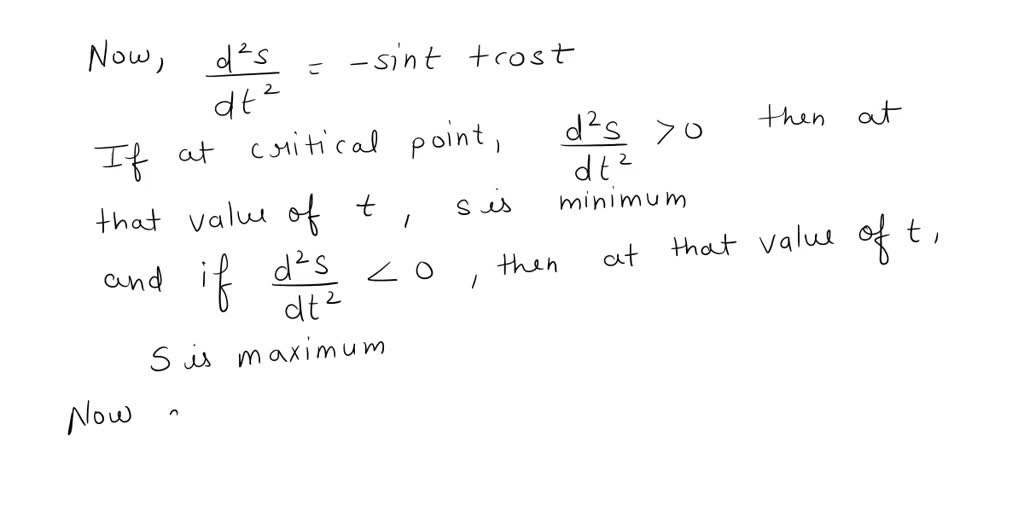 Now, d²s/dt² = -sint +cost
If at critical point, d²s/dt² > 0 then at
that value of t, s is minimum
and if d²s/dt² < 0, then at that value of t,
S is maximum
Now